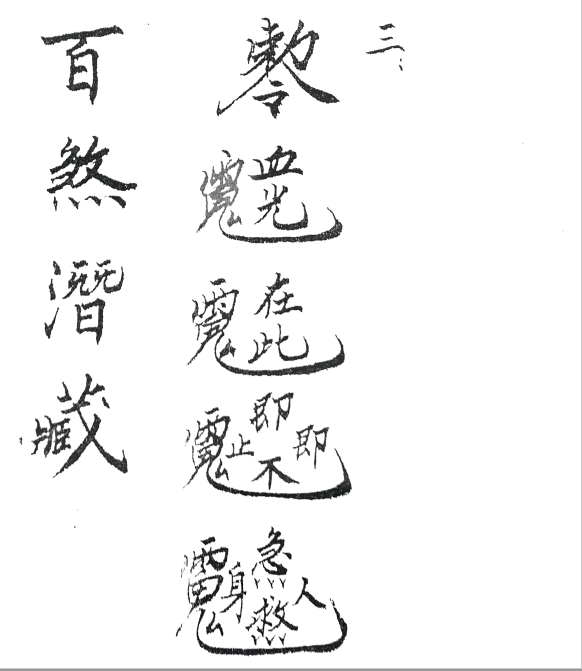 三:
敕令
血光
在此
即即不止
急救人身
百煞潛藏